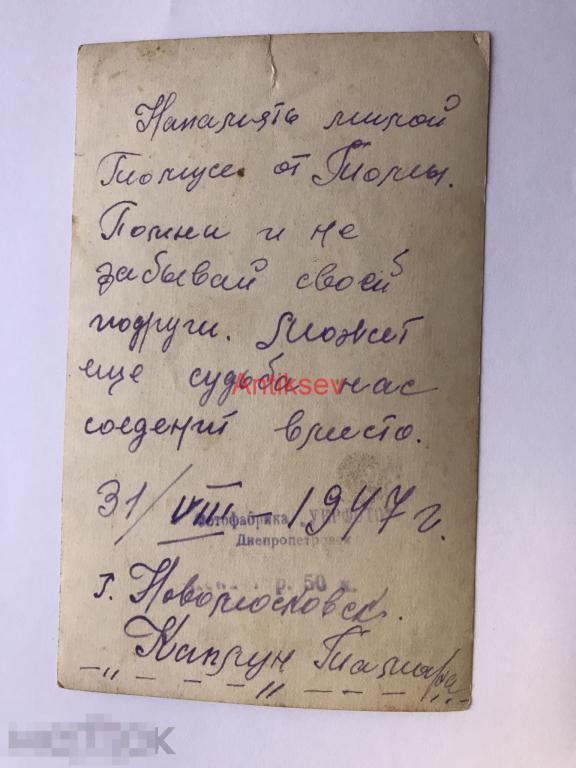 Напамять милой
Томусе от Томы.
Помни и не
забывай своей
подруги. Может
еще судьба нас
Antiksev
соеденит вместо.
31/VIII - 1947 г.
Фотофабрика „УКРФОТО"
Днепропетровск
р. 50 к.
г. Новомосковск.
Капрун Тамара